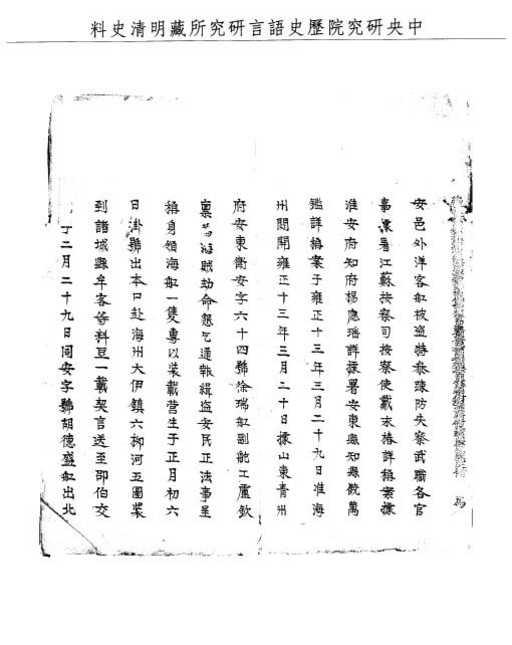 中央研究院歷史語言研究所藏明清史料
安邑外洋客舡被盜將疎防失察武職各官
事據署江蘇按察司按察使戴永椿詳稱案據
淮安府知府楊應瑤詳據署安東縣知縣饒萬
鑑詳稱案于雍正十三年三月二十九日准海
州關開雍正十三年三月二十日據山東青州
府安東衛安字六十四號徐瑞舡副舵工盧欽
稟為海賊劫命懇乞通報緝盜安民正法事呈
稱身領海舡一隻專以裝載營生于正月初六
日掛號出本口赴海州大伊鎮六柳河五圖裝
到諸城縣牟客等料豆一載契言送至邵伯交
二月二十九日同安字號胡德盛舡出北